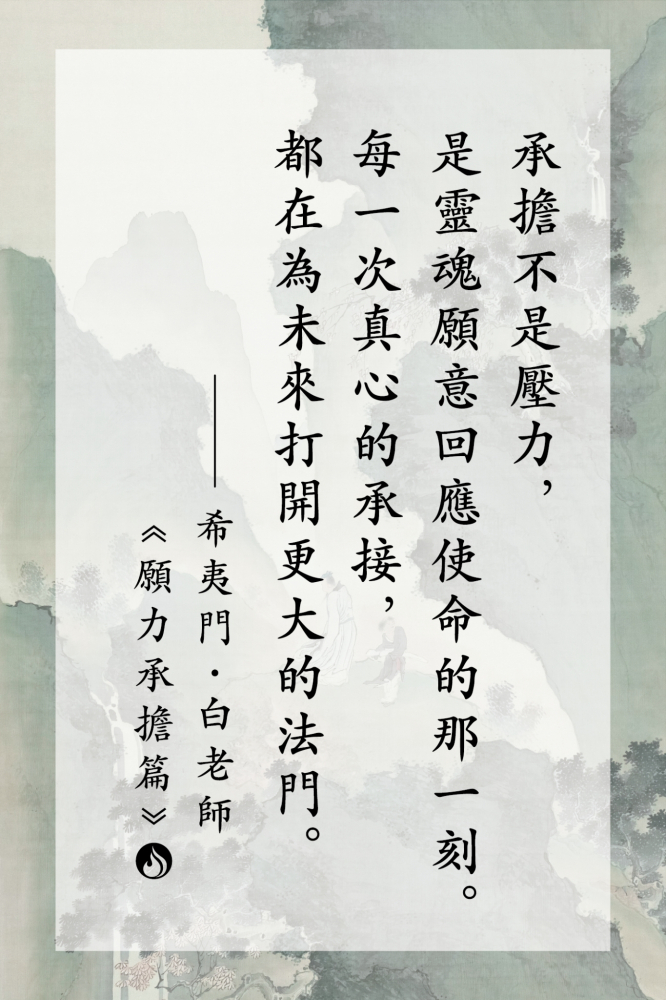 承擔不是壓力，
是靈魂願意回應使命的那一刻。
每一次真心的承接，
都在為未來打開更大的法門。
——希夷門·白老師
《願力承擔篇》